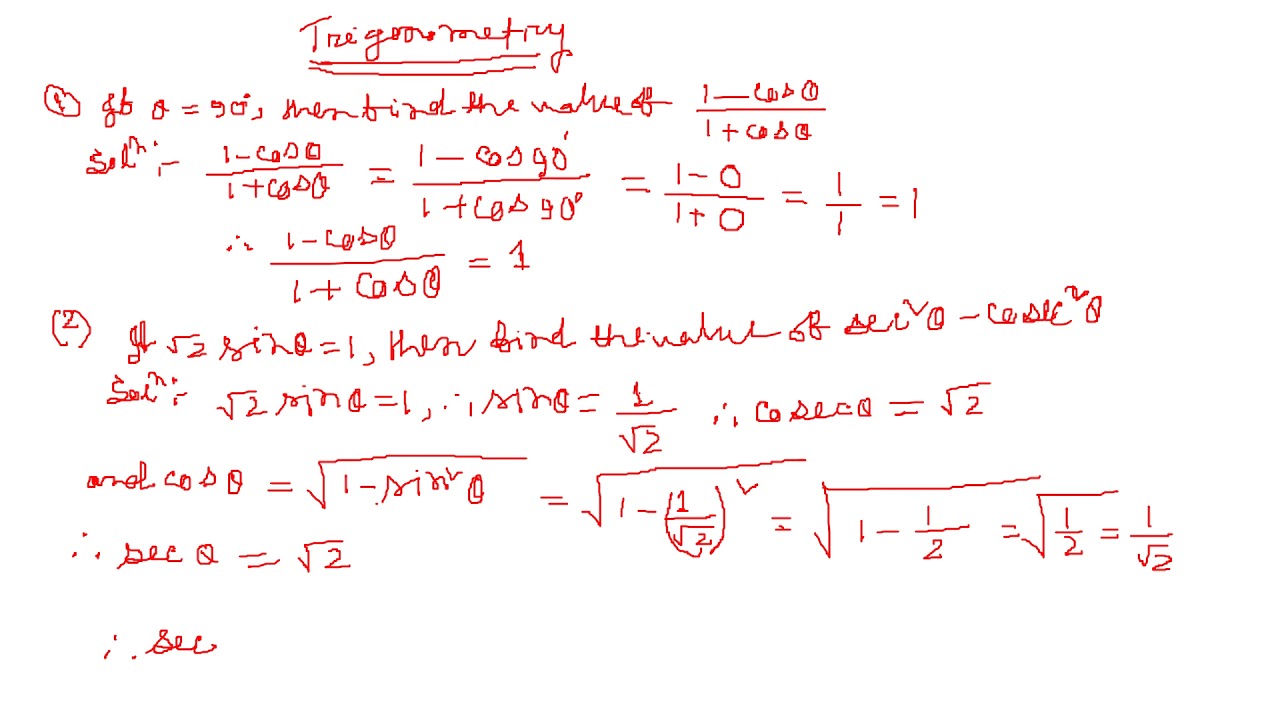 Trigonometry
(1) If θ = 90°, then find the value of (1 - cosθ)/(1 + cosθ)
Solⁿ:- (1 - cosθ)/(1 + cosθ) = (1 - cos90°)/(1 + cos90°) = (1 - 0)/(1 + 0) = 1/1 = 1
∴ (1 - cosθ)/(1 + cosθ) = 1
(2) If √2 sinθ = 1, then find the value of sec²θ - cosec²θ
Solⁿ:- √2 sinθ = 1, ∴, sinθ = 1/√2 ∴ cosecθ = √2
and cosθ = √(1 - sin²θ) = √(1 - (1/√2)²) = √(1 - 1/2) = √(1/2) = 1/√2
∴ secθ = √2
∴ sec